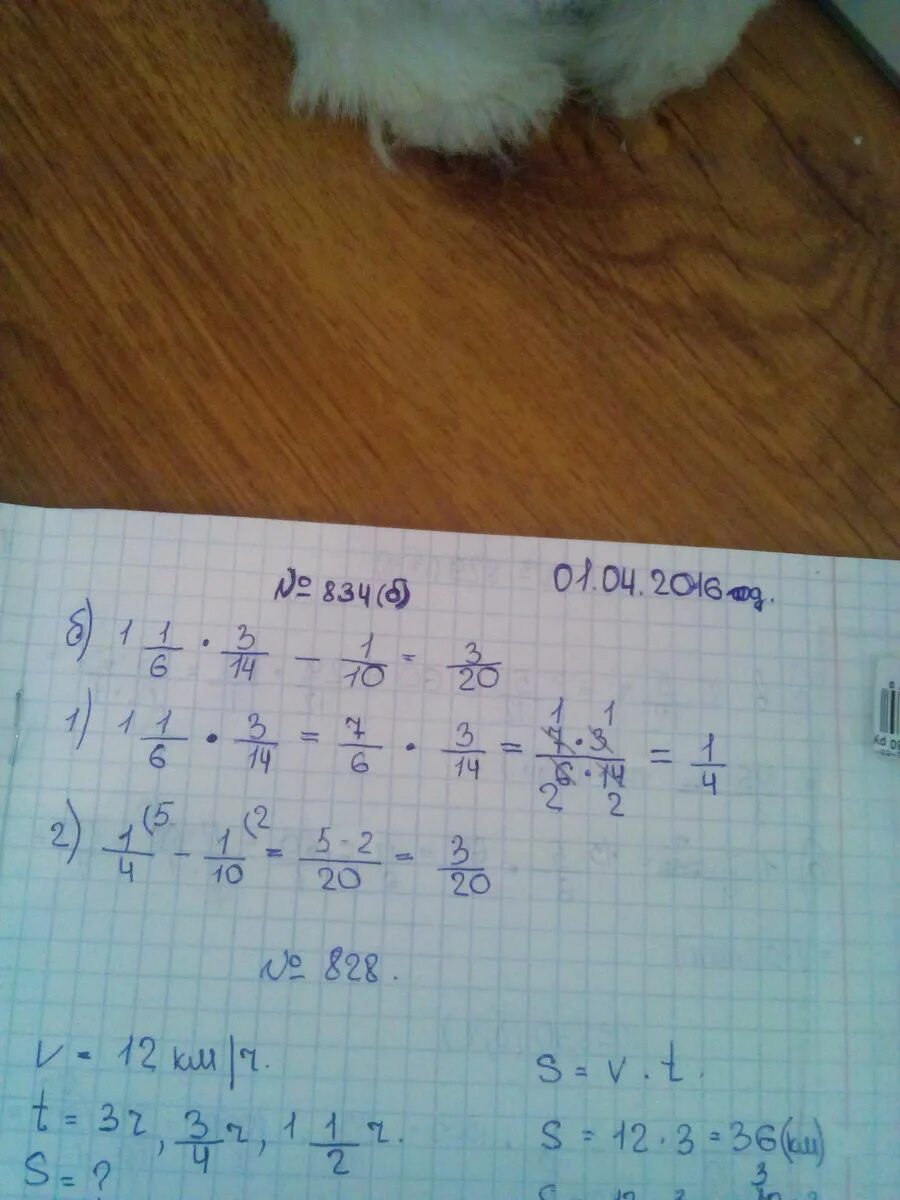 № 834(б) 01.04.2016 год.
б) 1 1/6 · 3/14 - 1/10 = 3/20
1) 1 1/6 · 3/14 = 7/6 · 3/14 = 7·3/6·14 = 1/4
1 1
2 2
2) 1/4 (5 - 1/10 (2 = 5-2/20 = 3/20
№ 828.
V = 12 км/ч.
t = 3ч, 3/4 ч, 1 1/2 ч.
S = ?
S = V · t.
S = 12 · 3 = 36 (км)